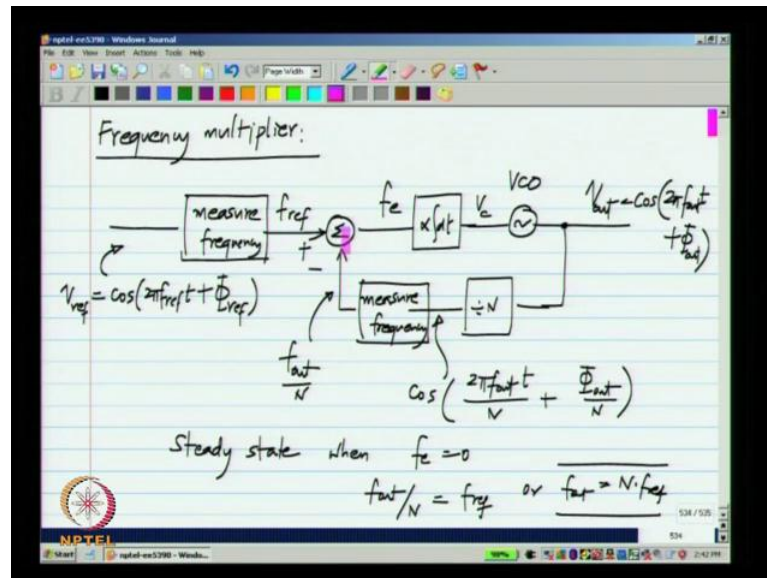 nptel-ee5390 - Windows Journal
File Edit View Insert Actions Tools Help
Page Width
B I
Frequency multiplier:
VCO
measure frequency
fref
+
-
Σ
fe
α∫dt
Vc
Vout = cos(2πfout t + Φout)
Vref = cos(2πfref t + Φref)
measure frequency
÷N
fout/N
cos(2πfout t/N + Φout/N)
Steady state when fe = 0
fout/N = fref or fout = N·fref
534 / 535
534
NPTEL
Start nptel-ee5390 - Windo...
98%
2:42 PM